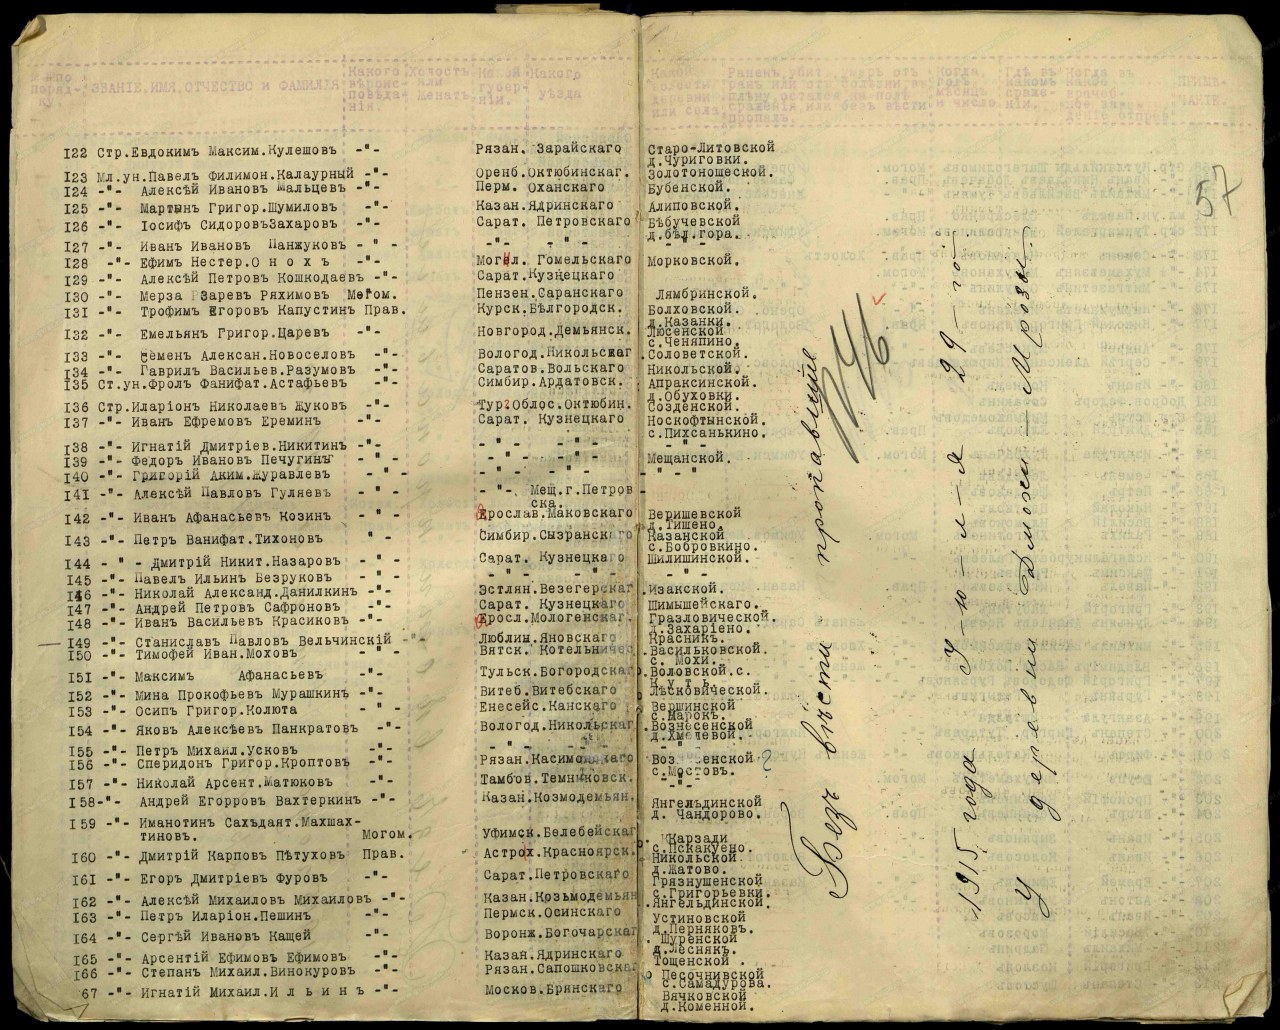 ЗВАНІЕ, ИМЯ, ОТЧЕСТВО и ФАМИЛІЯ
57
146
Безъ вѣсти пропавшіе
1915 года І-ю-л-я 29-го
У деревни
122 Стр.Евдокимъ Максим.Кулешовъ -"- Рязан. Зарайскаго Старо-Литовской
д.Чуриговки.
123 Мл.ун.Павелъ Филимон.Калаурный -"- Оренб.Октюбинскаг. Золотоношеской.
124 -"- Алексѣй Ивановъ Мальцевъ -"- Перм. Оханскаго Бубенской.
125 -"- Мартынъ Григор.Шумиловъ -"- Казан.Ядринскаго Алиповской.
126 -"- Іосифъ СидоровъЗахаровъ -"- Сарат. Петровскаго Бѣбучевской
д.бѣл.гора.
127 -"- Иванъ Ивановъ Панжуковъ -"- -"- -"- -"-
128 -"- Ефимъ Нестер.О н о х ъ -"- Могил. Гомельскаго Морковской.
129 -"- Алексѣй Петровъ Кошкодаевъ -"- Сарат.Кузнецкаго
130 -"- Мерза Заревъ Ряхимовъ Магом. Пензен.Саранскаго Лямбринской.
131 -"- Трофимъ Егоровъ Капустинъ Прав. Курск.Бѣлгородск. Болховской.
д.Казанки.
132 -"- Емельян Григор.Царевъ -"- Новгород.Демьянск. Люсенской
с.Ченяпино.
133 -"- Семен Алексан.Новоселовъ -"- Вологод.Никольскаг .Соловетской.
134 -"- Гаврилъ Васильев.Разумовъ -"- Саратов.Вольскаго Никольской.
135 Ст.ун.Фролъ Фанифат.Астафьевъ -"- Симбир.Ардатовск. Апраксинской.
д.Обуховки.
136 Стр.Иларіон Николаев Жуковъ -"- Тур.Облос.Октюбин. Созденской.
137 -"- Иванъ Ефремовъ Ереминъ -"- Сарат. Кузнецкаго Носкофтынской.
с.Пихсанькино.
138 -"- Игнатій Дмитріев.Никитинъ -"- -"- -"- -"-
139 -"- Федоръ Ивановъ Печугинъ -"- -"- -"- Мещанской.
140 -"- Григорій Аким.Журавлевъ -"- -"- -"- " - "
141 -"- Алексѣй Павловъ Гуляевъ -"- -"- Мещ.г.Петров -
ска.
142 -"- Иванъ Афанасьевъ Козинъ -"- Ярослав.Маковскаго Веришевской
д.Тишено.
143 -"- Петръ Ванифат.Тихоновъ " - Симбир.Сызранскаго Казанской
с.Бобровкино.
144 -"- Дмитрій Никит.Назаровъ -"- Сарат. Кузнецкаго Шилишинской.
145 -"- Павелъ Ильинъ Безруковъ -"- -"- -"- -"-
146 -"- Николай Александ.Данилкинъ -"- Эстлян.Везегерскаг .Изакской.
147 -"- Андрей Петровъ Сафроновъ -"- Сарат. Кузнецкаго Шимышейскаго.
148 -"- Иванъ Васильевъ Красиковъ -"- Яросл.Мологенскаг. Гразловической.
д.Захаріено.
149 -"- Станиславъ Павловъ Вельчинскій -"- Люблин.Яновскаго Красникъ.
150 -"- Тимофей Иван.Моховъ -"- Вятск. Котельничес .Васильковской.
с. Мохи.
151 -"- Максимъ Афанасьевъ -"- Тульск.Богородскаг .Воловской.с.
К у т ь
152 -"- Мина Прокофьевъ Мурашкинъ -"- Витеб.Витебскаго Лѣсковической.
153 -"- Осипъ Григор.Колюта -"- Енесейс.Канскаго Вершинской
с.Марокъ.
154 -"- Яковъ Алексѣевъ Панкратовъ -"- Вологод.Никольскаг Вознесенской
155 -"- Петръ Михаил.Усковъ -"- -"- -"- -"-
156 -"- Сперидонъ Григор.Кроптовъ -"- Рязан.Касимовскаго Воз енской ?
с.Мостовъ.
157 -"- Николай Арсент.Матюковъ -"- Тамбов.Темниковск. -"-
158-"- Андрей Егорровъ Вахтеркинъ -"- Казан.Козмодемьян. Янгельдинской
д. Чандорово.
159 -"- Иманотин Сахъдаят.Махшах-
тиновъ. Могом. Уфимск.Белебейскаг Карзади
с.Искакуено.
160 -"- Дмитрій Карповъ Пѣтуховъ Прав. Астрох.Красноярск. Никольской
д.Жатово.
161 -"- Егоръ Дмитріевъ Фуровъ -"- Сарат.Петровскаго Грязнушенской
с.Григорьевки.
162 -"- Алексѣй Михаиловъ Михаиловъ -"- Казан.Козьмодемьян .Янгельдинской.
163 -"- Петръ Иларіон.Пешинъ -"- Пермск.Осинскаго Устиновской
д.Перняковъ.
164 -"- Сергѣй Ивановъ Кащей -"- Воронж.Богочарскаг Шуренской
д.Леснякъ.
165 -"- Арсентій Ефимовъ Ефимовъ -"- Казан.Ядринскаго Тощенской .
166 -"- Степанъ Михаил.Винокуровъ -"- Рязан.Сапошковскаг Песочнивской
с.Самадурова.
67 -"- Игнатій Михаил.И л ь и н ъ -"- Москов.Брянскаго Вячковской
д.Коменной.